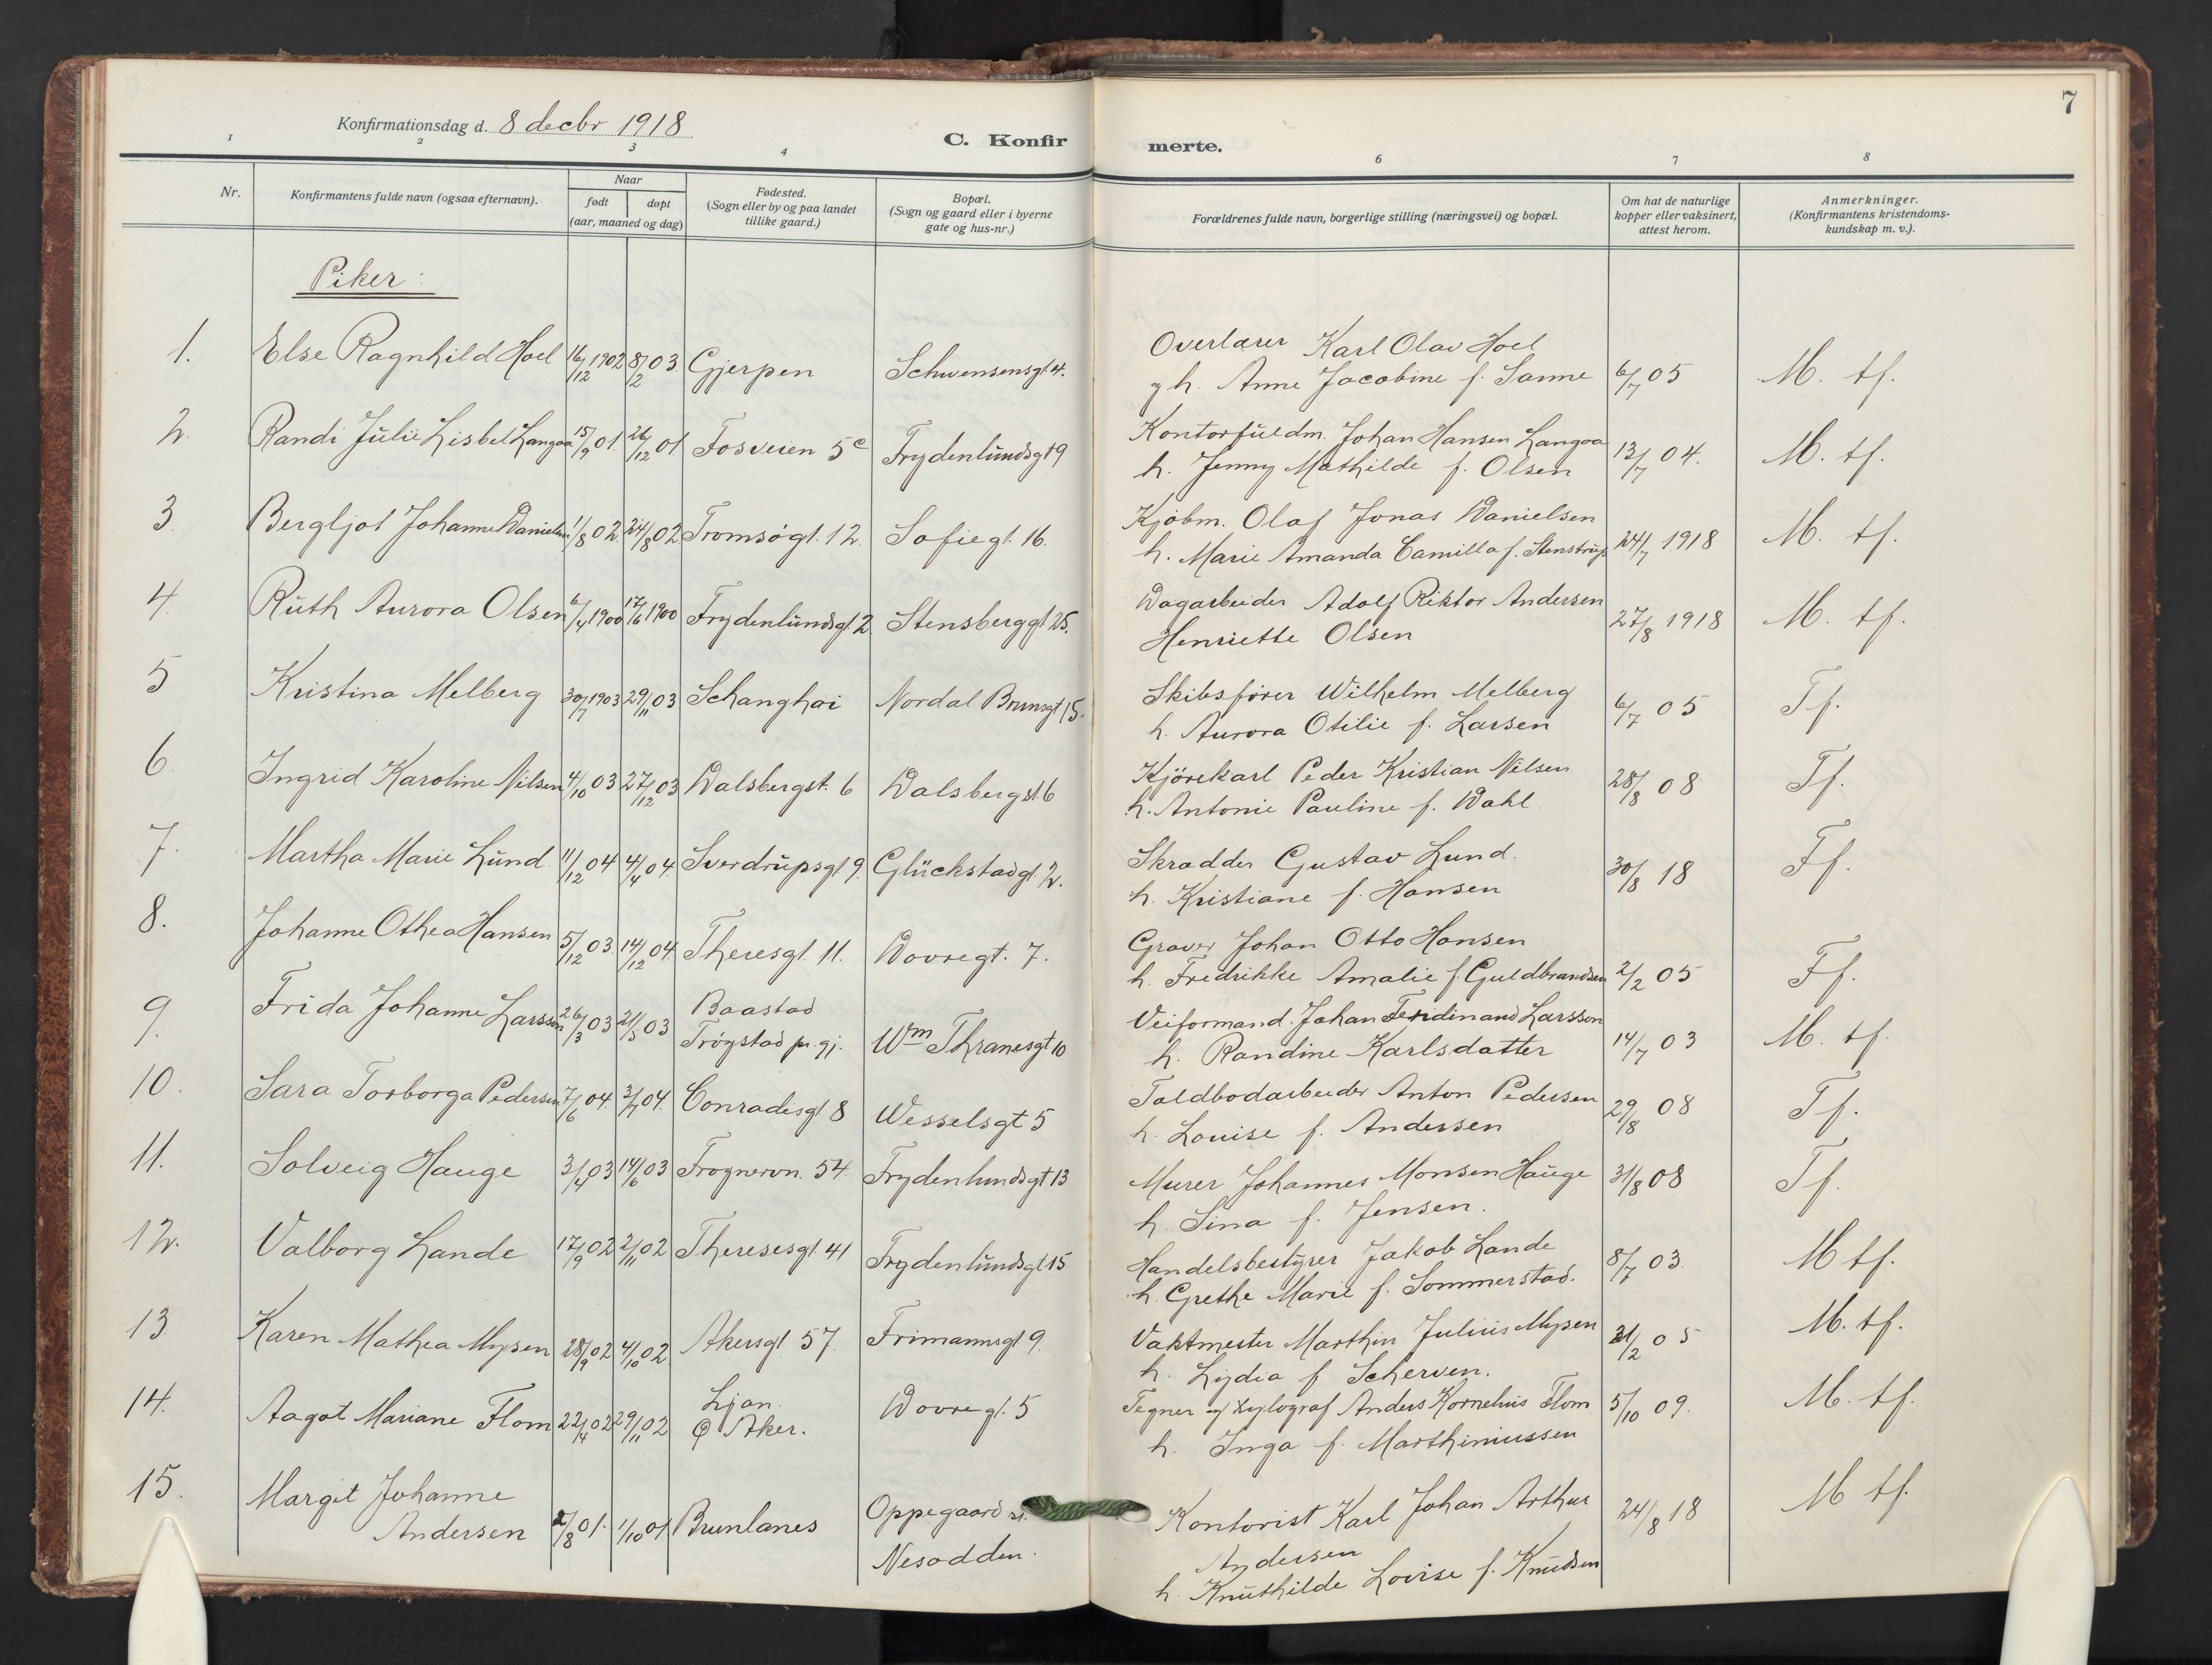 7
Konfirmationsdag d. 8 decbr 1918
C. Konfir merte.
1 2 3 4 6 7 8
Nr.
Konfirmantens fulde navn (ogsaa efternavn).
Naar
født døpt
(aar, maaned og dag)
Fødested.
(Sogn eller by og paa landet
tillike gaard.)
Bopæl.
(Sogn og gaard eller i byerne
gate og hus-nr.)
Forældrenes fulde navn, borgerlige stilling (næringsvei) og bopæl.
Om hat de naturlige
kopper eller vaksinert,
attest herom.
Anmerkninger.
(Konfirmantens kristendoms-
kundskap m. v.).
Piker:
1. Else Ragnhild Hoel 16/12 1902 8/2 03 Gjerpen Schwensensgt 4.
Overlærer Karl Olav Hoel
g h. Anne Jacobine f. Sanne 6/7 05 M. tf.
2. Randi Julie Lisbet Langaa 15/9 01. 26/12 01 Fosveien 5c Frydenlundsgt 9
Kontorfuldm. Johan Hansen Langaa
h. Jenny Mathilde f. Olsen 13/7 04. M. tf.
3. Bergljot Johanne Danielsen 1/8 02. 24/8 02 Tromsøgt. 12. Sofiegt. 16.
Kjøbm. Olaf Jonas Danielsen
h. Marie Amanda Camilla f. Stenstrup 24/7 1918 M. tf.
4. Ruth Aurora Olsen 6/4 1900 17/6 1900 Frydenlundsgt. 2 Stensberggt 25.
Dagarbeider Adolf Riktor Andersen
Henriette Olsen 27/8 1918 M. tf.
5 Kristina Melberg 30/7 1903 29/11 03 Schanghai Nordal Brunsgt 15.
Skibsfører Wilhelm Melberg
h. Aurora Otilie f. Larsen 6/7 05 Tf.
6. Ingrid Karoline Nilsen 4/10 03 27/12 03 Dalsbergst. 6 Dalsbergst 6
Kjørekarl Peder Kristian Nilsen
h. Antonie Pauline f. Dahl 28/8 08 Tf.
7. Martha Marie Lund 11/12 04 4/4 04. Sverdrupsgt 9. Glückstadgt. 2.
Skrædder Gustav Lund.
h. Kristiane f. Hansen 30/8 18 Tf.
8. Johanne Othea Hansen 5/12 03. 14/12 04. Theresgt. 11. Dovregt. 7.
Graver Johan Otto Hansen
h. Fredrikke Amalie f. Guldbrandsen 2/2 05 Tf.
9. Frida Johanne Larsson 26/3 03 21/5 03 Baastad
Trøgstad pr.gj. Wm Thranesgt 10
Veiformand. Johan Ferdinand Larsson
h. Randine Karlsdatter 14/7 03 M. tf.
10. Sara Torborga Pedersen 7/6 04. 3/7 04. Conradisgt 8 Wesselsgt 5
Toldbodarbeider Anton Pedersen
h. Louise f. Andersen 29/8 08 Tf.
11. Solveig Hauge 3/4 03 14/6 03 Frognervn. 54. Frydenlundsgt 13
Murer Johannes Monsen Hauge
h. Sina f. Jensen. 31/8 08 Tf.
12. Valborg Lande 17/9 02 2/11 02 Theresesgt. 41 Frydenlundsgt 15
Handelsbestyrer Jakob Lande
h. Grethe Marie f. Sommerstad. 8/7 03. M tf.
13 Karen Mathea Mysen 28/9 02 4/10 02. Akersgt 57. Frimannsgt 9.
Vaktmester Marthin Julius Mysen
h. Lydia f. Scherven. 21/2 05 M. tf.
14. Aagot Mariane Flom 22/4 02 29/11 02 Ljan.
Ø Aker. Dovregt. 5
Tegner og xylograf Anders Kornelius Flom
h. Inga f. Marthiniussen 5/10 09. M. tf.
15. Margit Johanne
Andersen 2/8 01. 1/10 01 Brunlanes Oppegaard
Nesodden.
Kontorist Karl Johan Arthur
Andersen
h. Knuthilde Lovise f. Knudsen 24/8 18 M tf.